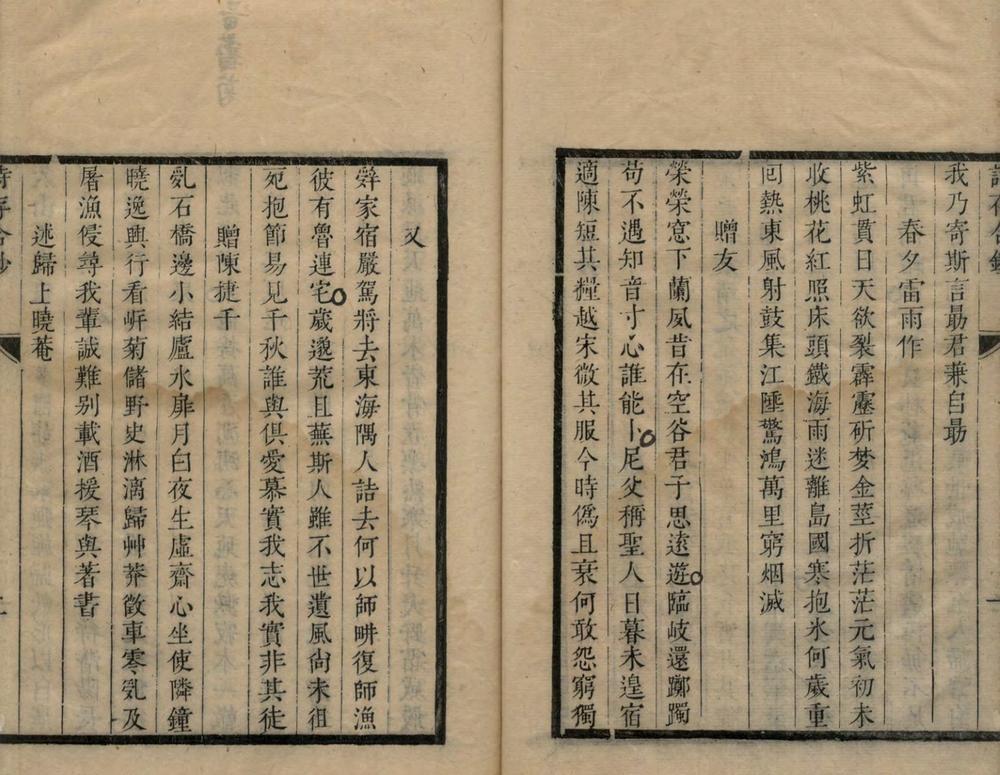 我乃寄斯言勗君兼自勗
春夕雷雨作
紫虹貫日天欲裂霹靂斫梦金莖折茫茫元氣初未
收桃花紅照床頭鐵海雨迷離島國寒抱氷何歲重
囘熱東風射鼓集江匯驚鴻萬里窮烟滅
贈友
榮榮窓下蘭夙昔在空谷君子思遠遊臨岐還躑躅
苟不遇知音寸心誰能卜尼父稱聖人日暮未遑宿
適陳短其糧越宋微其服今時僞且衰何敢怨窮獨
又
辤家宿嚴駕將去東海隅人詰去何以師畊復師漁
彼有魯連宅歲邈荒且蕪斯人雖不世遺風尙未徂
宛抱節易見千秋誰與俱愛慕實我志我實非其徒
贈陳捷千
亂石橋邊小結廬氷扉月白夜生虛齋心坐使隣鐘
曉逸興行看岍菊儲野史淋漓歸艸莽徵車零亂及
屠漁侵尋我輩誠難别載酒援琴與著書
述歸上曉菴